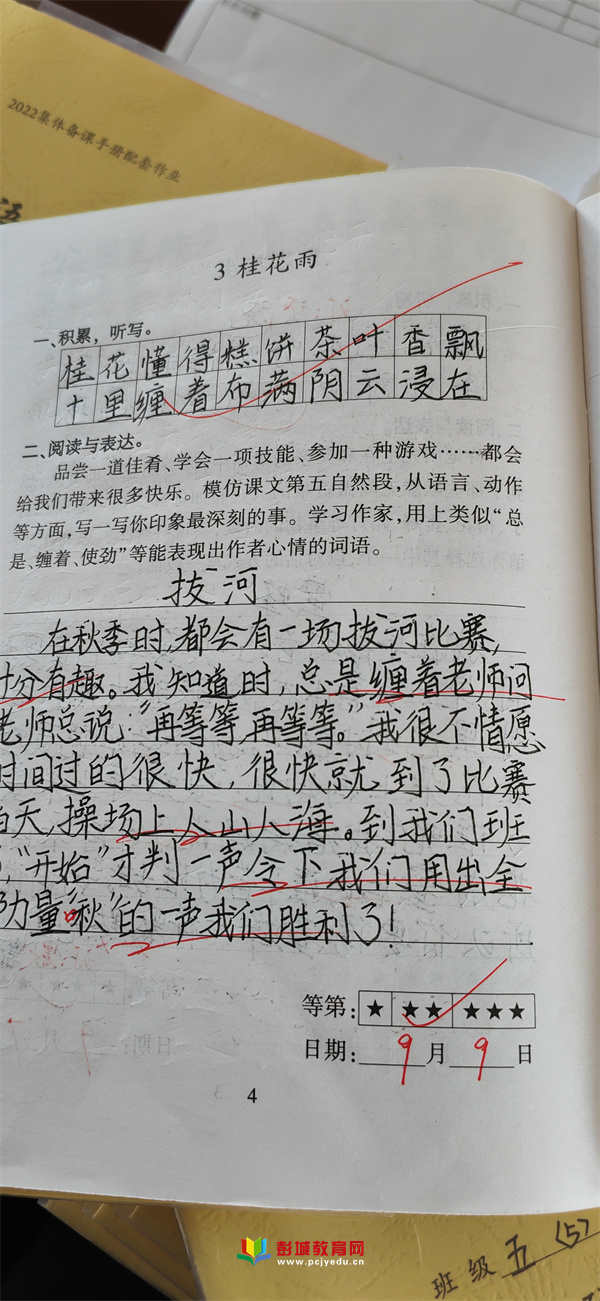 2022集体备课手册配套作业
语
3 桂花雨
一、积累，听写。
桂花懂得糕饼茶叶香飘
十里缠着布满阴云浸在
二、阅读与表达。
品尝一道佳肴、学会一项技能、参加一种游戏……都会
给我们带来很多快乐。模仿课文第五自然段，从语言、动作
等方面，写一写你印象最深刻的事。学习作家，用上类似“总
是、缠着、使劲”等能表现出作者心情的词语。
拔河
在秋季时，都会有一场拔河比赛，
十分有趣。我知道时，总是缠着老师问
老师总说：“再等等，再等等。”我很不情愿
时间过的很快，很快就到了比赛
当天，操场上人山人海。到我们班
，“开始”才判一声令下我们用出全
力量“啾”的一声我们胜利了！
等第：★ ★★ ★★★
日期：9月9日
4
彭城教育网
www.pcjyedu.cn
班级 五〈5〉